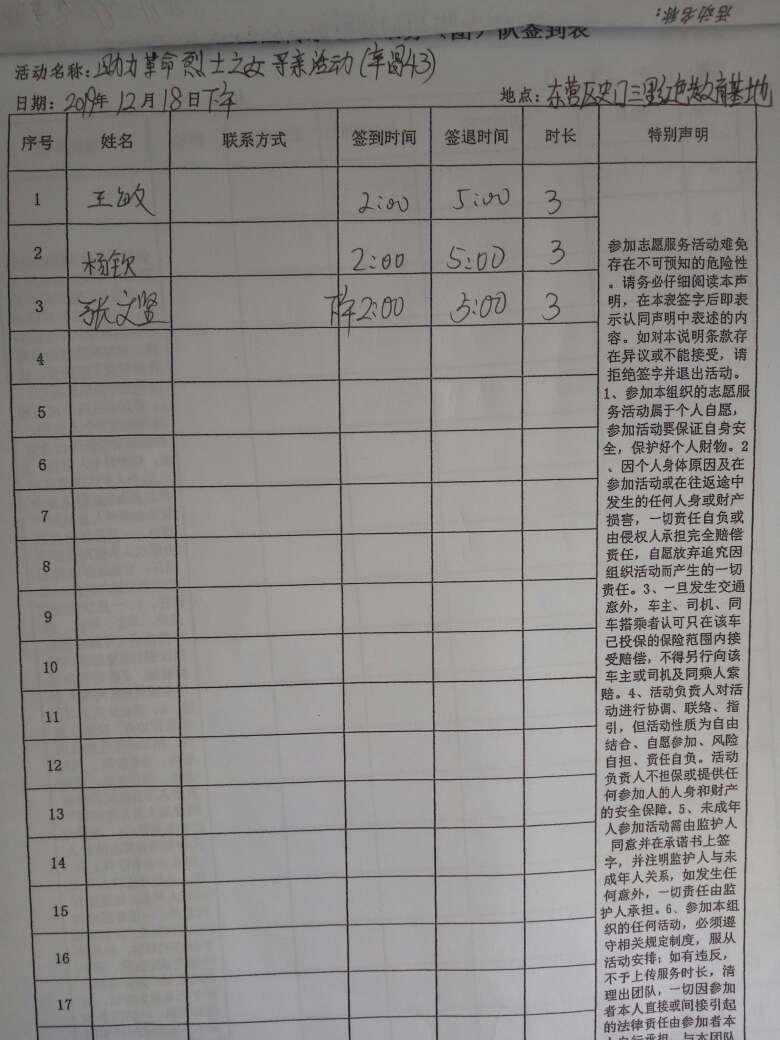 活动名称:
(团)队签到表
活动名称:助力革命烈士之女寻亲活动(辛昌43)
日期:2019年12月18日下午
地点:东营区史门三里红色教育基地
序号 姓名 联系方式 签到时间 签退时间 时长 特别声明
1 王敏 2:00 5:00 3
2 杨钦 2:00 5:00 3
3 张文贤 下午2:00 5:00 3
4
5
6
7
8
9
10
11
12
13
14
15
16
17
参加志愿服务活动难免
存在不可预知的危险性
。请务必仔细阅读本声
明，在本表签字后即表
示认同声明中表述的内
容。如对本说明条款存
在异议或不能接受，请
拒绝签字并退出活动。
1、参加本组织的志愿服
务活动属于个人自愿，
参加活动要保证自身安
全，保护好个人财物。2
、因个人身体原因及在
参加活动或在往返途中
发生的任何人身或财产
损害，一切责任自负或
由侵权人承担完全赔偿
责任，自愿放弃追究因
组织活动而产生的一切
责任。3、一旦发生交通
意外，车主、司机、同
车搭乘者认可只在该车
已投保的保险范围内接
受赔偿，不得另行向该
车主或司机及同乘人索
赔。4、活动负责人对活
动进行协调、联络、指
引，但活动性质为自由
结合、自愿参加、风险
自担、责任自负。活动
负责人不担保或提供任
何参加人的人身和财产
的安全保障。5、未成年
人参加活动需由监护人
同意并在承诺书上签
字，并注明监护人与未
成年人关系，如发生任
何意外，一切责任由监
护人承担。6、参加本组
织的任何活动，必须遵
守相关规定制度，服从
活动安排；如有违反，
不于上传服务时长，清
理出团队，一切因参加
者本人直接或间接引起
的法律责任由参加者本
人自行承担，与本团队